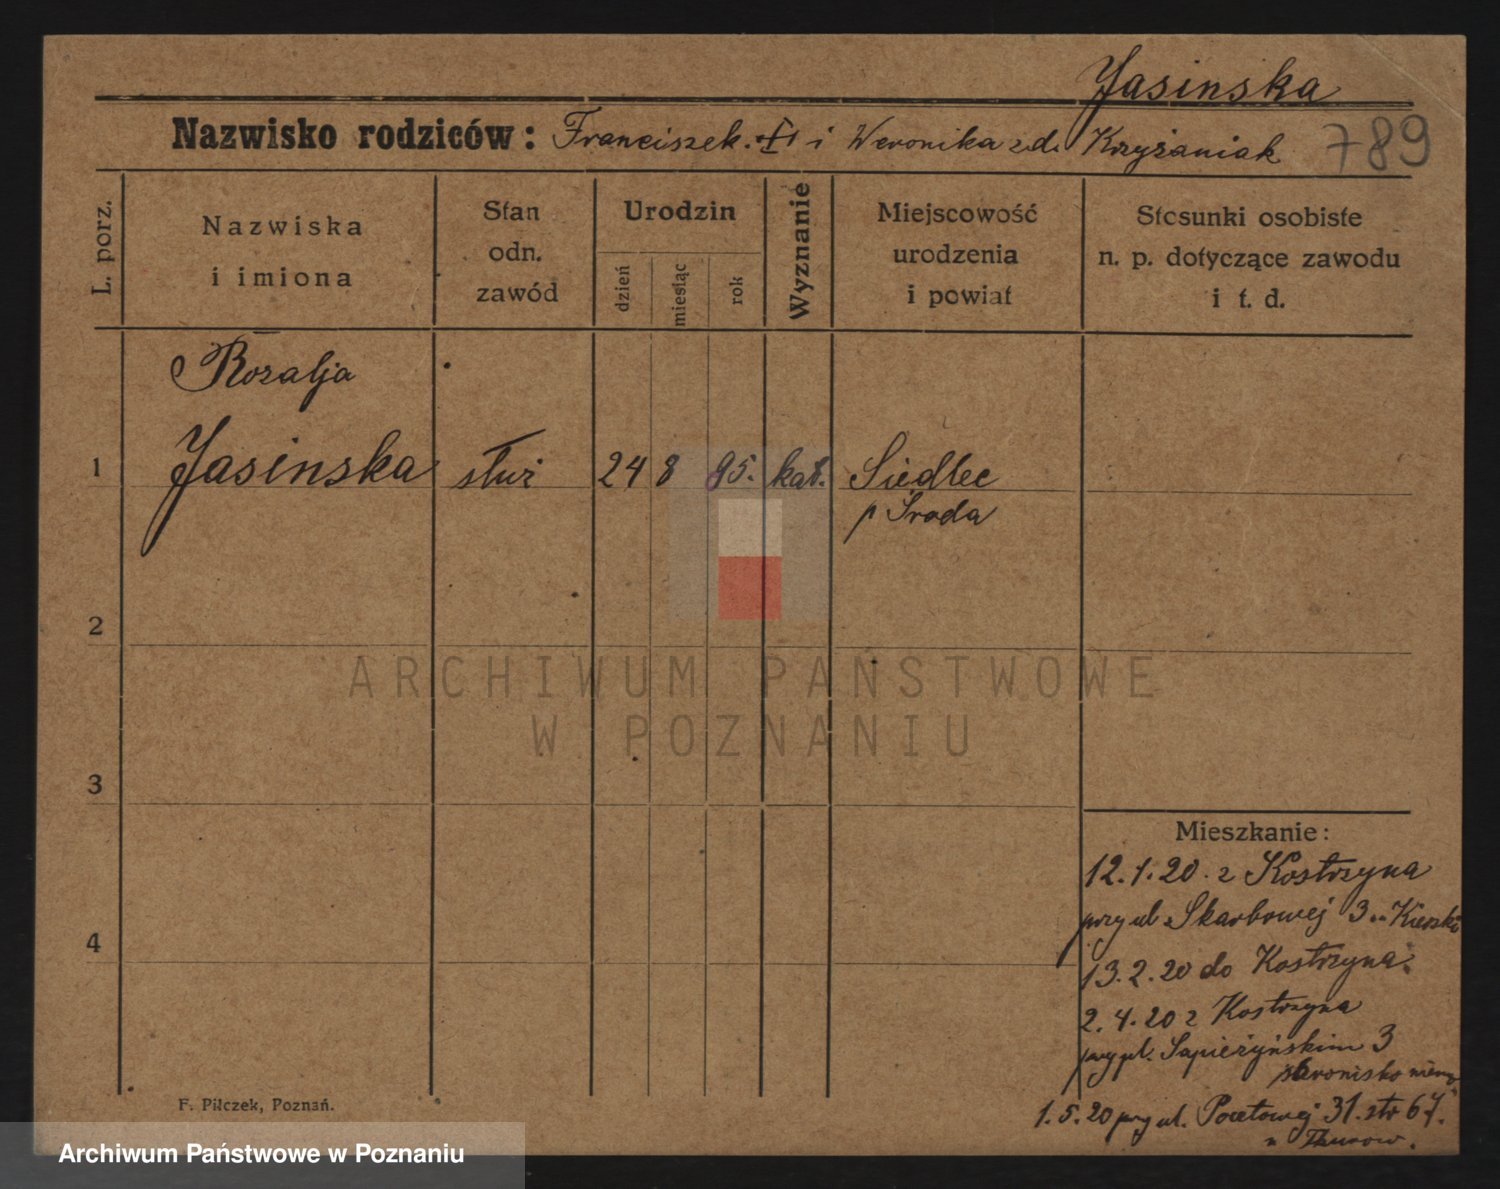 Jasinska
Nazwisko rodziców: Franciszek i Weronika z d. Krzyżaniak 789
L. porz.
Nazwiska
i imiona
Stan
odn.
zawód
Urodzin
dzień
miesiąc
rok
Wyznanie
Miejscowość
urodzenia
i powiat
Stosunki osobiste
n. p. dotyczące zawodu
i t. d.
Rozalja
1 Jasinska służ 24 8 95. kat. Siedlec
p Środa
2
3
4
Mieszkanie:
12.1.20. z Kostrzyna
przy ul. Skarbowej 3
13.2.20 do Kostrzyna.
2.4.20 z Kostrzyna
przy pl. Sapieżyńskim 3
1.5.20 przy ul. Pocztowej 31. str 67.
F. Pilczek, Poznań.
ARCHIWUM PAŃSTWOWE
W POZNANIU
Archiwum Państwowe w Poznaniu